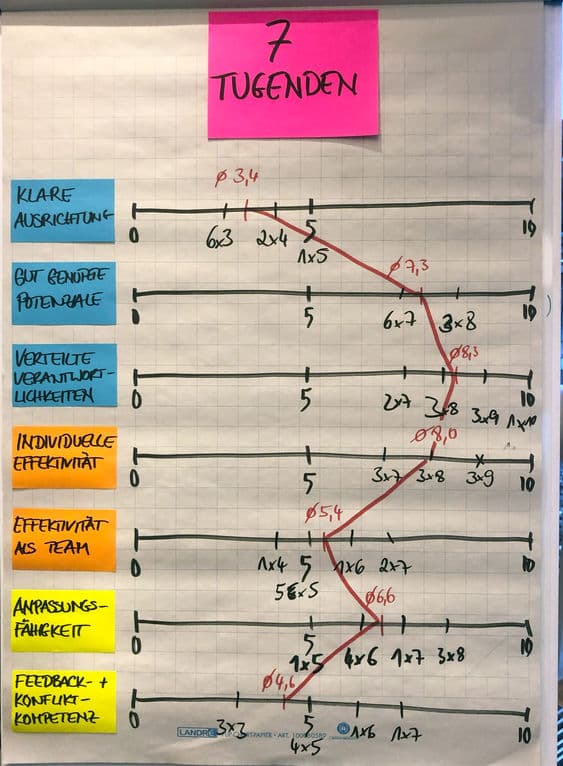 7
TUGENDEN
Ø 3,4
KLARE
AUSRICHTUNG
0 5 10
6x3 2x4 1x5
Ø7,3
GUT GENUTZTE
POTENZIALE
0 5 10
6x7 3x8
Ø8,3
VERTEILTE
VERANTWORT-
LICHKEITEN
0 5 10
2x7 3x8 3x9 1x10
Ø8,0
INDIVIDUELLE
EFFEKTIVITÄT
0 5 10
3x7 3x8 3x9
Ø5,4
EFFEKTIVITÄT
ALS TEAM
0 5 10
1x4 1x6 2x7
5x5
Ø6,6
ANPASSUNGS-
FÄHIGKEIT
0 5 10
1x5 4x6 1x7 3x8
Ø4,6
FEEDBACK- +
KONFLIKT-
KOMPETENZ
0 5 10
3x3 4x5 1x6 1x7